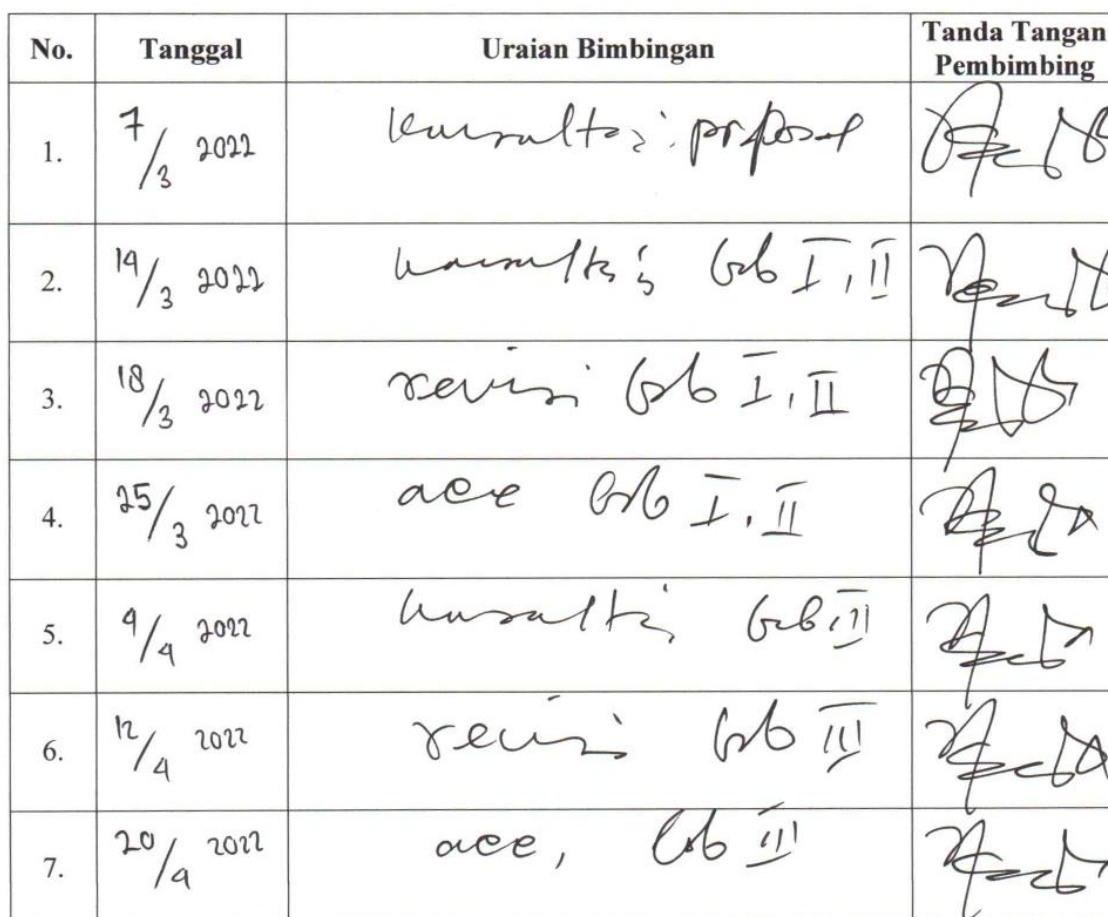 No. Tanggal Uraian Bimbingan Tanda Tangan Pembimbing
1. 7/3 2022 Konsultasi proposal
2. 14/3 2022 konsultasi bab I, II
3. 18/3 2022 revisi bab I, II
4. 25/3 2022 acc bab I, II
5. 4/4 2022 konsultasi bab III
6. 12/4 2022 revisi bab III
7. 20/4 2022 acc, bab III